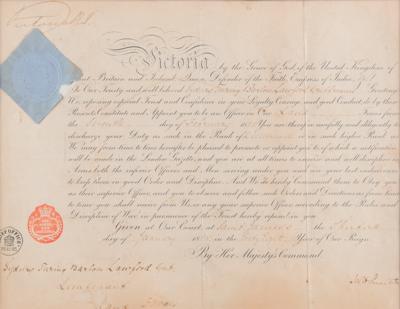 Victoria R.I.
Victoria by the Grace of God, of the United Kingdom of
Great Britain and Ireland Queen, Defender of the Faith, Empress of India, &c.
To Our Trusty and well beloved Sydney Barton Lawford Greeting
We, reposing especial Trust and Confidence in your Loyalty, Courage, and good Conduct, do by these
Presents Constitute and Appoint you to be an Officer in Our Land Forces
from the day of 188 You are therefore carefully and diligently to
discharge your Duty as such in the Rank of Lieutenant or in such higher Rank as
We may from time to time hereafter be pleased to promote or appoint you to, of which a notification
will be made in the London Gazette, and you are at all times to exercise and well discipline in
Arms both the inferior Officers and Men serving under you and use your best endeavours
to keep them in good Order and Discipline. And We do hereby Command them to Obey you
as their superior Officer, and you to observe and follow such Orders and Directions as from time
to time you shall receive from Us, or any your superior Officer, according to the Rules and
Discipline of War, in pursuance of the Trust hereby reposed in you.
Given at Our Court, at Saint James's the
day of January 188 in the Year of Our Reign
By Her Majesty's Command
Sydney Turing Barlow Lawford Gent
Lieutenant
Land Forces